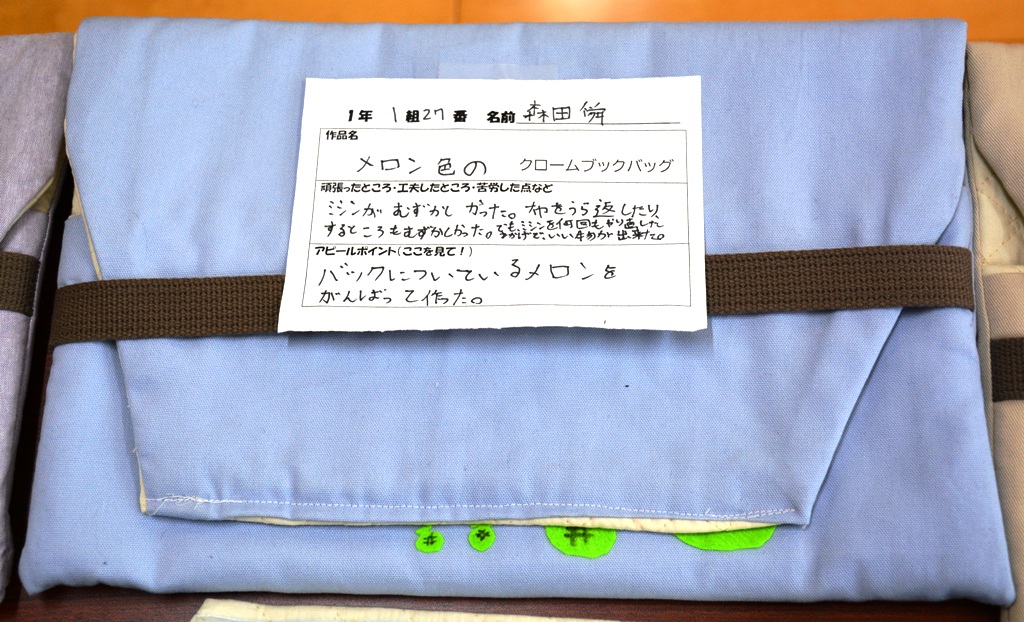 1年 1組27番 名前 森田 舜
作品名
メロン色の クロームブックバッグ
頑張ったところ・工夫したところ・苦労した点など
ミシンが むずかしかった。布をうら返したり、
するところもむずかしかった。でもミシンを何回もやり直した
おかげで、いい作品が出来た。
アピールポイント(ここを見て!)
バックについているメロンを
がんばって作った。